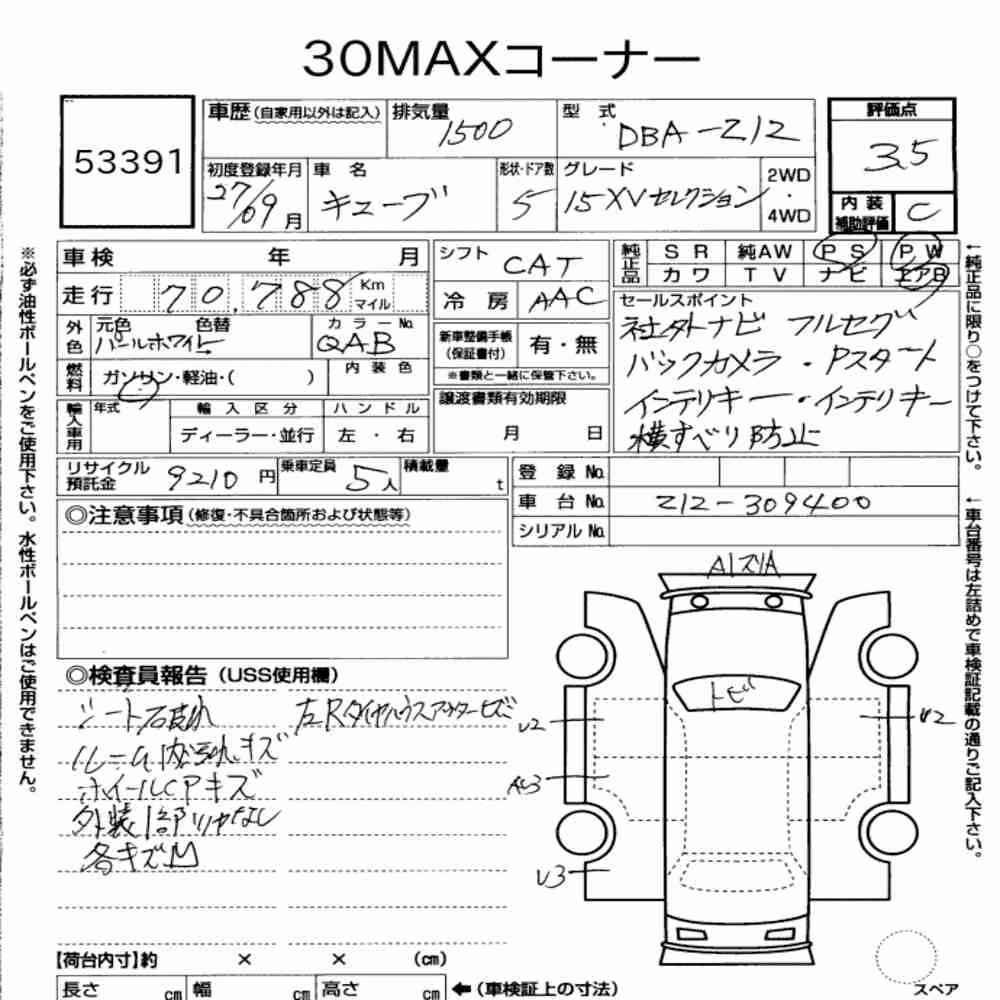 30MAXコーナー
53391
車歴(自家用以外は記入) 排気量 1500 型式 DBA-Z12 評価点 3.5
初度登録年月 27/09月 車名 キューブ 形状・ドア数 5 グレード 15XVセレクション 2WD・4WD 内装補助評価 C
車検 年 月
走行 70,788 Km マイル
外色 元色 色替 パールホワイト カラーNo. QAB
燃料 ガソリン・軽油・( ) 内装色
輸入車用 年式 輸入区分 ハンドル
ディーラー・並行 左・右
シフト CAT
冷房 AAC
新車整備手帳(保証書付) 有・無
※書類と一緒に保管下さい。
譲渡書類有効期限
月 日
純正品 SR 純AW PS PW
カワ TV ナビ エアB
セールスポイント
社外ナビ フルセグ
バックカメラ・Pスタート
インテリキー・インテリキー
横すべり防止
リサイクル預託金 9210円 乗車定員 5人 積載量 t
登録No.
車台No. Z12-309400
シリアルNo.
◎注意事項(修復・不具合箇所および状態等)
◎検査員報告(USS使用欄)
シート石皮れ 左Rタイヤハウスアウターセズ
ルーム内汚れキズ
ホイールCPキズ
外装1部ツヤなし
各キズM
A1ズリA
トビ
U2
U2
U3
【荷台内寸】約 × × (cm)
長さ cm 幅 cm 高さ cm ←(車検証上の寸法)
スペア
※必ず油性ボールペンをご使用下さい。水性ボールペンはご使用できません。
←純正品に限り○をつけて下さい。
←車台番号は左詰めで車検証記載の通りご記入下さい。